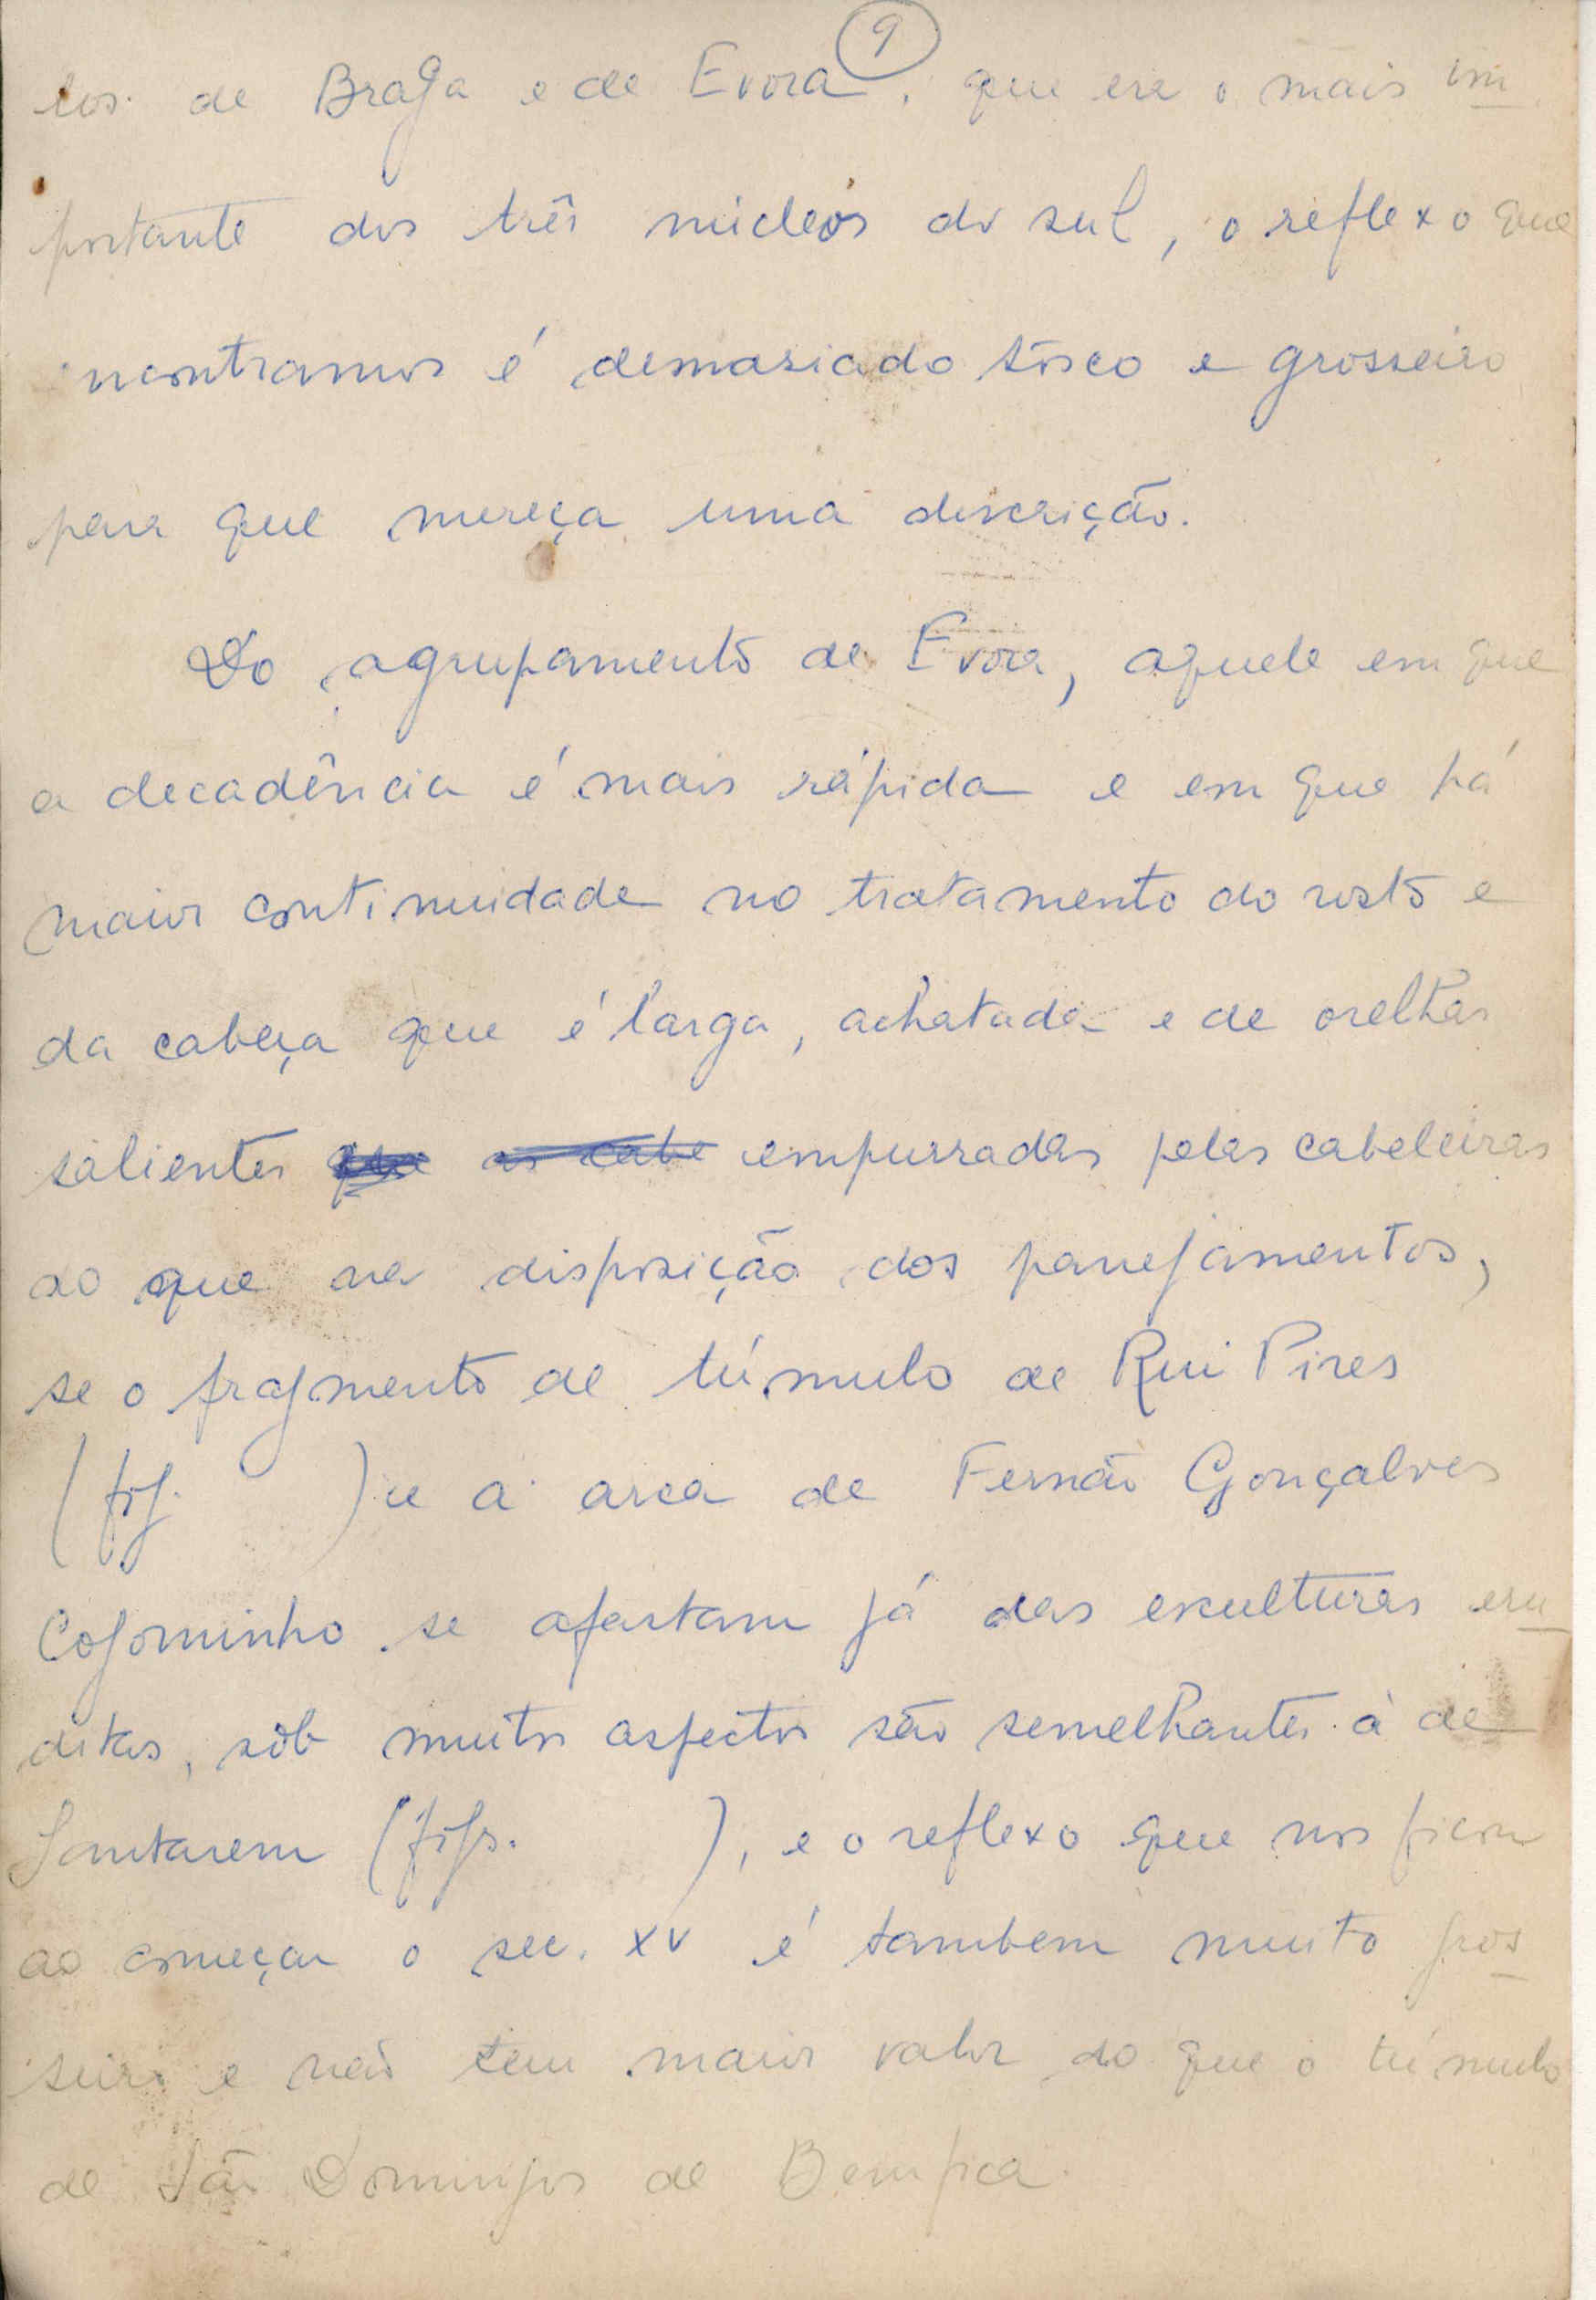 9
los de Braga e de Evora, que era o mais im
portante dos três núcleos do sul, o reflexo que
ncontramos é demasiado tôsco e grosseiro
para que mereça uma descrição.
Do agrupamento de Evora, aquele em que
a decadência é mais rápida e em que há
maior continuidade no tratamento do rosto e
da cabeça que é larga, achatada e de orelhas
salientes que as cabe empurradas pelas cabeleiras
do que na disposição dos panejamentos,
se o fragmento de túmulo de Rui Pires
(fig. ) e a arca de Fernão Gonçalves
Cogominho se afastam já das esculturas eru
ditas, sôb muitos aspectos são semelhantes à de
Santarem (figs. ), e o reflexo que nos ficou
ao começar o sec. XV é tambem muito gros
seiro e não tem maior valor do que o túmulo
de São Domingos de Bemfica.